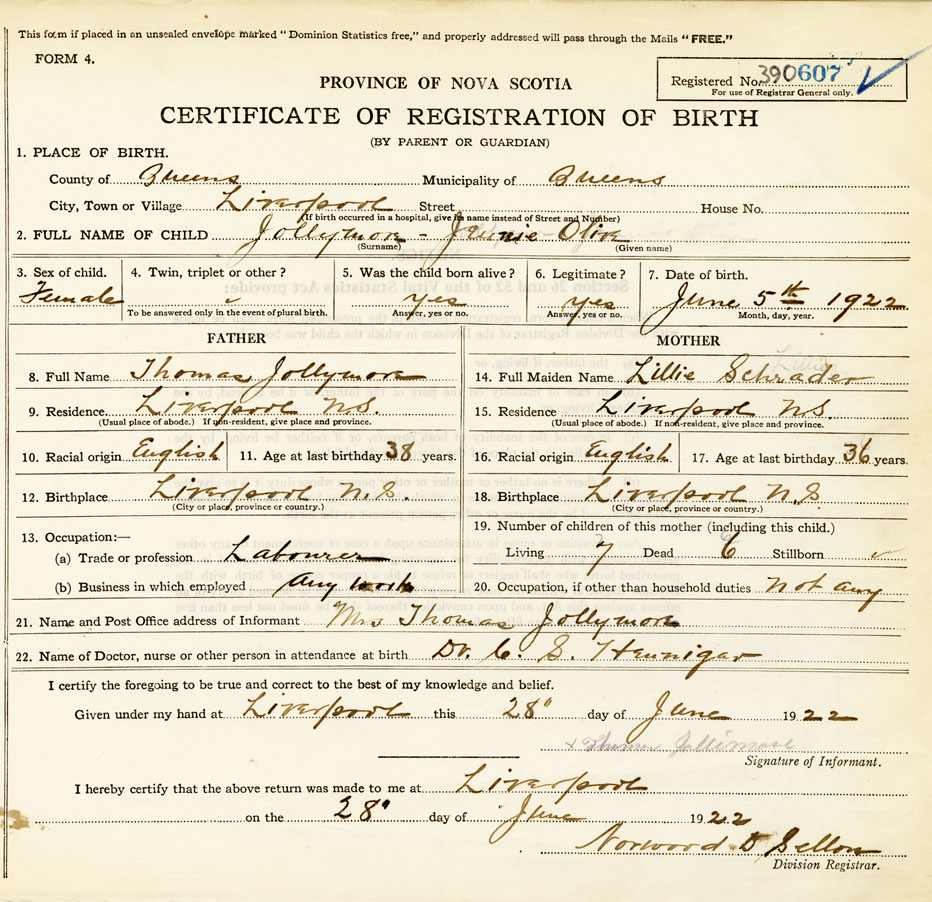 This form if placed in an unsealed envelope marked "Dominion Statistics free," and properly addressed will pass through the Mails "FREE."
FORM 4.
Registered No. 390607
For use of Registrar General only.
PROVINCE OF NOVA SCOTIA
CERTIFICATE OF REGISTRATION OF BIRTH
(BY PARENT OR GUARDIAN)
1. PLACE OF BIRTH.
County of Queens Municipality of Queens
City, Town or Village Liverpool Street House No.
(If birth occurred in a hospital, give its name instead of Street and Number)
2. FULL NAME OF CHILD Jollymore - Jennie Olive
(Surname) (Given name)
3. Sex of child. 4. Twin, triplet or other? 5. Was the child born alive? 6. Legitimate? 7. Date of birth.
Female yes yes June 5th 1922
To be answered only in the event of plural birth. Answer, yes or no. Answer, yes or no. Month, day, year.
FATHER MOTHER
8. Full Name Thomas Jollymore 14. Full Maiden Name Lillie Schrader
9. Residence Liverpool N.S. 15. Residence Liverpool N.S.
(Usual place of abode.) If non-resident, give place and province. (Usual place of abode.) If non-resident, give place and province.
10. Racial origin English 11. Age at last birthday 38 years. 16. Racial origin English 17. Age at last birthday 36 years.
12. Birthplace Liverpool N.S. 18. Birthplace Liverpool N.S
(City or place, province or country.) (City or place, province or country.)
13. Occupation:— 19. Number of children of this mother (including this child.)
(a) Trade or profession Labourer Living 7 Dead 6 Stillborn
(b) Business in which employed Any work 20. Occupation, if other than household duties Not any
21. Name and Post Office address of Informant Mrs Thomas Jollymore
22. Name of Doctor, nurse or other person in attendance at birth Dr. C. S. Hennigar
I certify the foregoing to be true and correct to the best of my knowledge and belief.
Given under my hand at Liverpool this 28" day of June 1922
x Thomas Jollimore
Signature of Informant.
I hereby certify that the above return was made to me at Liverpool
on the 28" day of June 1922
Norwood D Sellon
Division Registrar.